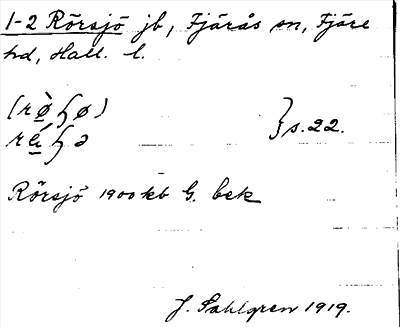 1-2 Rörsjö jb, Fjärås sn, Fjäre
hd, Hall. l.
s. 22.
Rörsjö 1900 kb G. bek
J. Sahlgren 1919.